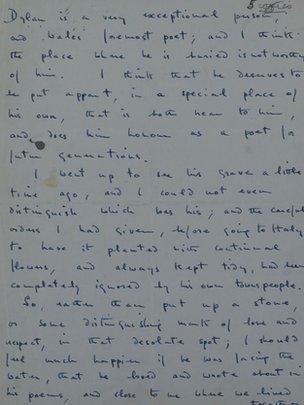 5 copies
Dylan is a very exceptional person,
and Wales' foremost poet; and I think
the place where he is buried is not worthy
of him. I think that he deserves to
be put appart, in a special place of
his own, that is both near to him,
and does him honour as a poet for
future generations.
I went up to see his grave a little
time ago, and I could not even
distinguish which was his; and the careful
orders I had given, before going to Italy
to have it planted with continual
flowers, and always kept tidy, had been
completely ignored by his own townspeople.
So, rather than put up a stone,
or some distinguishing mark of love and
respect, in that desolate spot; I should
feel much happier if he was facing the
water, that he loved and wrote about in
his poems, and close to me where we lived
together